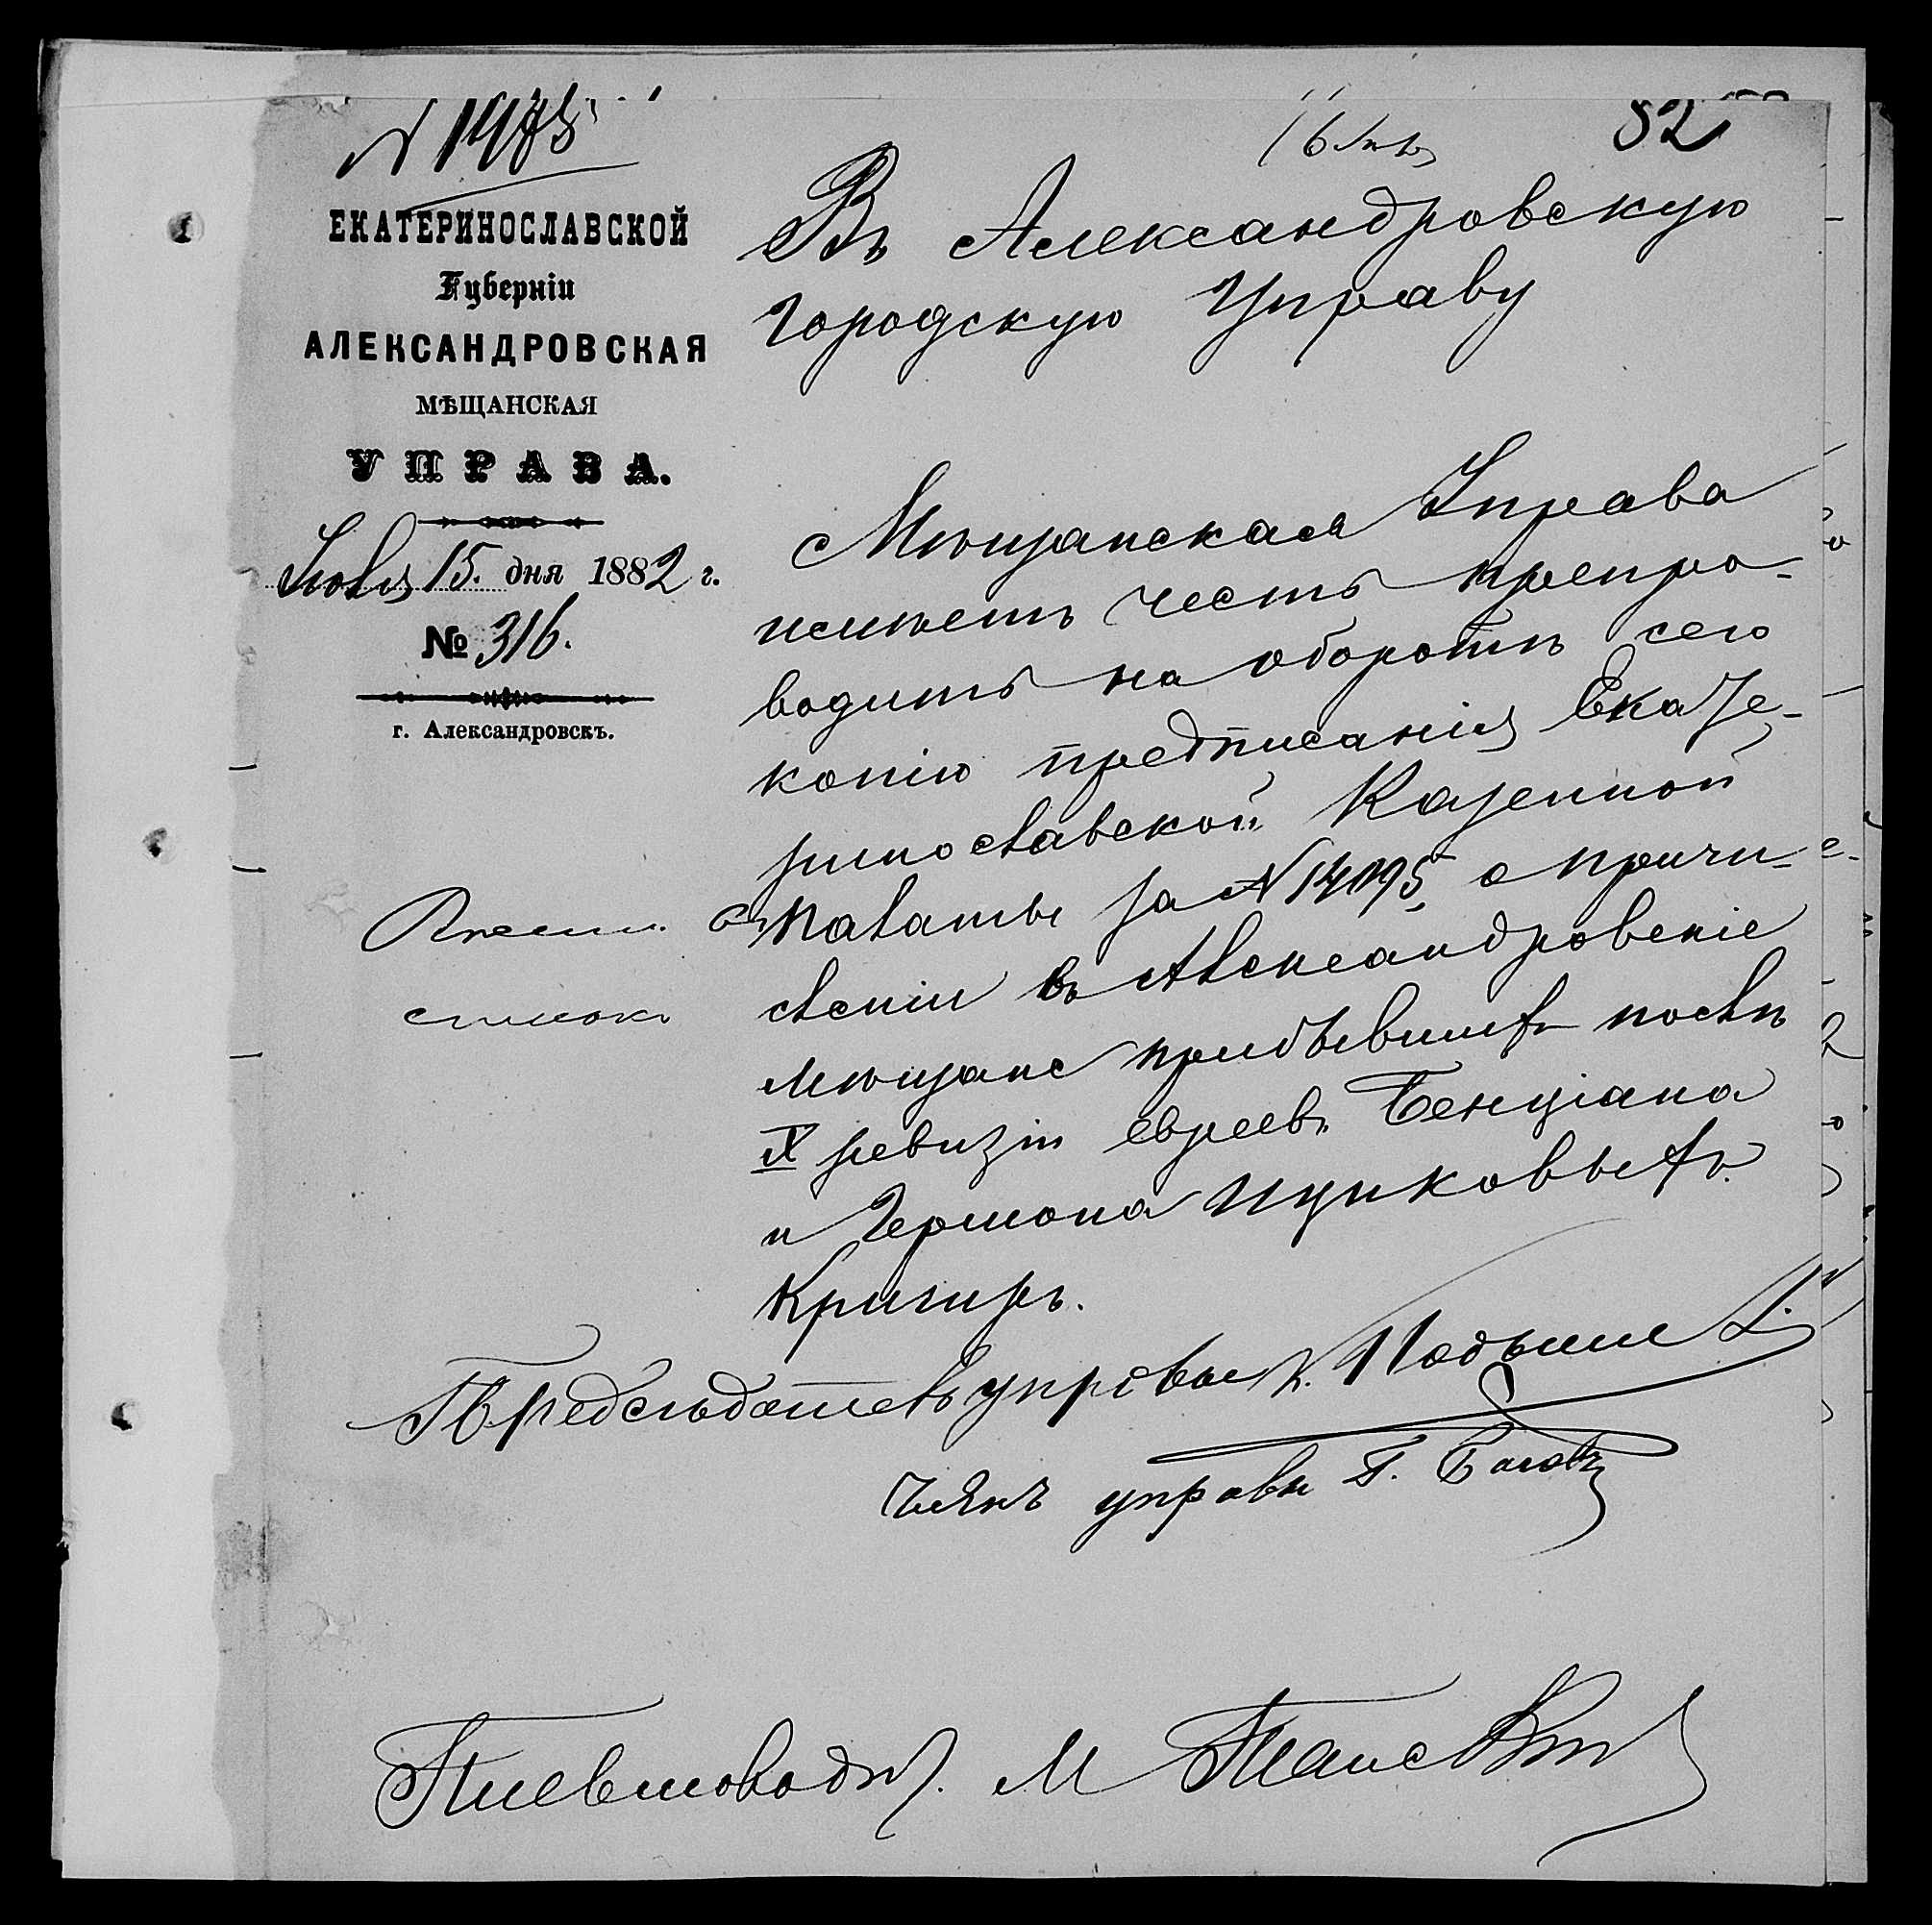 N 1485
82
ЕКАТЕРИНОСЛАВСКОЙ
Губерніи
АЛЕКСАНДРОВСКАЯ
МѢЩАНСКАЯ
УПРАВА.
15. дня 1882 г.
№ 316.
г. Александровскъ.
Въ Александровскую
Городскую Управу
Мѣщанская Управа
имѣетъ честь препро-
водить на оборотѣ сего
копію предписанія Екате-
ринославской Казенной
Палаты за N 14195, о причи-
сленіи въ Александровскіе
мѣщане прибывшихъ послѣ
X ревизіи евреевъ Бенціана
и Германа Ицковыхъ
Кригиръ.
списокъ
Предсѣдатель управы
Членъ управы Г.
Письмоводит. М